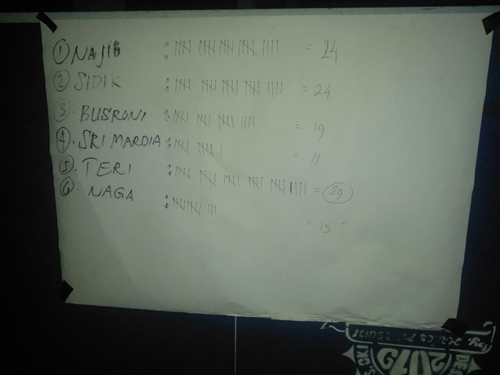 ① NAJIB : = 24
② SIDIK : = 24
③ BUSRONI : = 19
④ SRI MARDIA : = 11
⑤ TERI : = 29
⑥ NAGA : = 13
2019